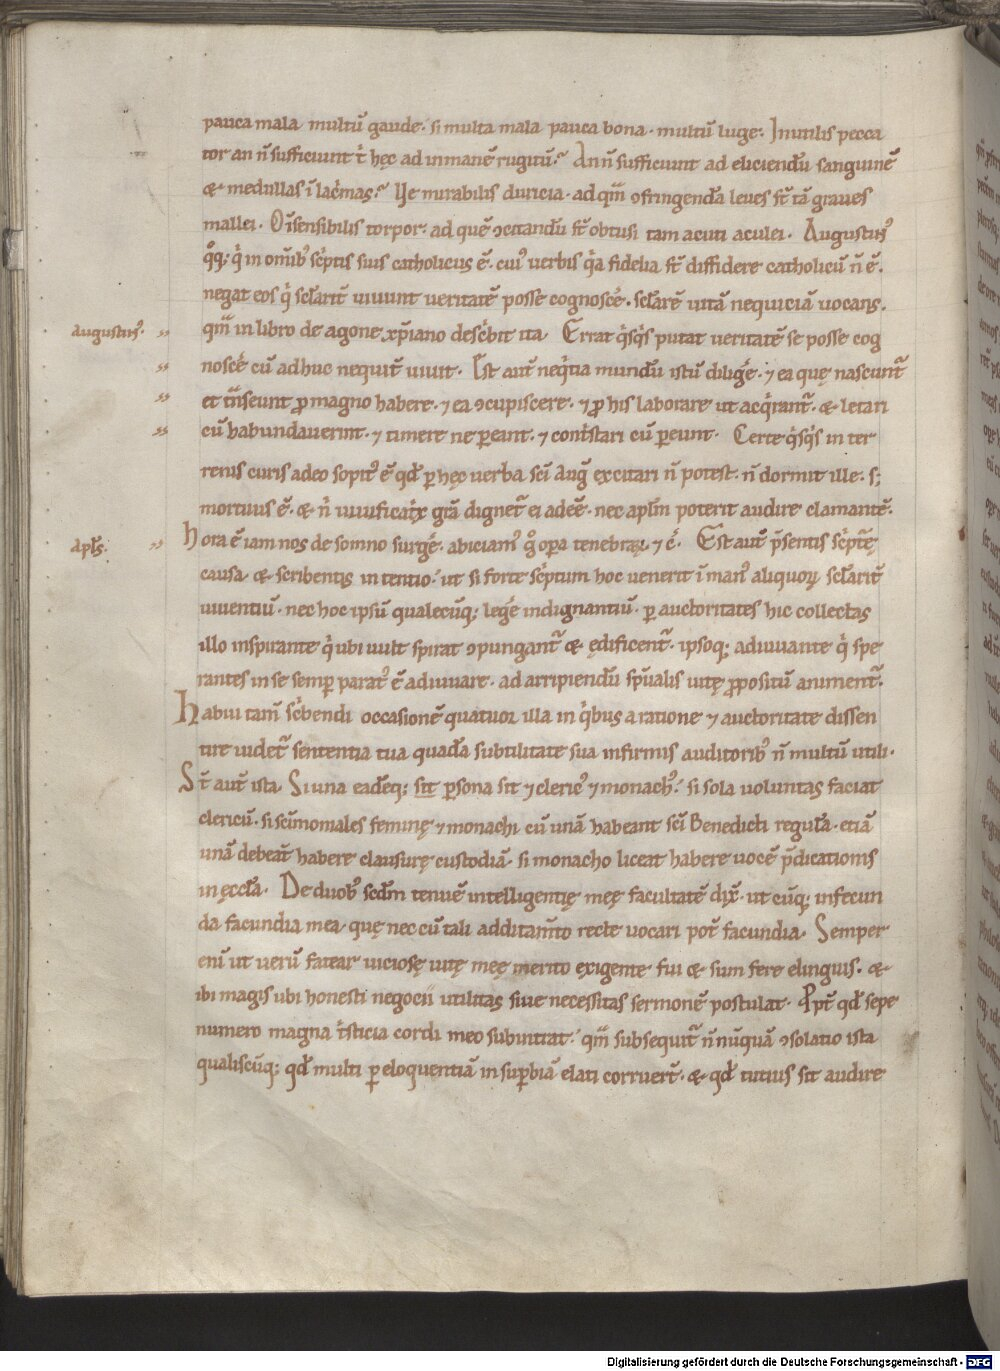 pauca mala multū gaude· si multa mala pauca bona· multū luge· Inutilis pecca
tor an ñ sufficiunt t' hęc ad inmanē rugitū? An ñ sufficiunt ad eliciendū sanguinē
& medullas ī lac'mas? Ve mirabilis duricia· ad qm̄ ɔfringendā leues st̄ tā graues
mallei· O īsensibilis torpor· ad quē ɔcitandū st̄ obtusi tam acuti aculei· Augustin'
q̊q; q' in om̄ib' sc'ptis suis catholicus ē· cui' uerbis q'a fidelia st̄ diffidere catholicū ñ ē·
negat eos q' sclarit̄ uiuunt ueritatē posse cognosce'· sclarē uitā nequiciā uocans·
augustin'· qm̄ in libro de agone xp̄iano desc'bit ita· Errat q'sq's putat ueritatē se posse cog
nosce' cū adhuc nequit̄ uiuit· Est aut̄ neq'tia mundū istū dilige'· ⁊ ea quę nascunt̄
et t'nseunt p magno habere· ⁊ ea ɔcupiscere· ⁊ p his laborare ut acq'rant̄· & letari
cū habundauerint· ⁊ timere ne pereant· ⁊ cont'stari cū pereunt· Certe q'sq's in ter
renis curis adeo sopit' ē qđ p hęc uerba sc̄i Aug̅ excitari ñ potest· ñ dormit ille· s;
mortuus ē· & ñ uiuificat'x gr̄a dignet̄ ei adeē· nec aplm̄ poterit audire clamantē·
apl's· hora ē iam nos de somno surge'· abiciam' g̊ opera tenebraꝝ ⁊ c̄· Est aut̄ p̄sentis sc'ptę
causa & scribentis intentio· ut si forte sc'ptum hoc uenerit ī man' aliquoꝝ sclarit̄
uiuentiū· nec hoc ipsū qualecūq; lege' indignantiū· p auctoritates hic collectas
illo inspirante q' ubi uult spirat ɔpungant̄ & ędificent̄· ipsoq; adiuuante q' spe
rantes in se semp parat' ē adiuuare· ad arripiendū sp̄ualis uitę ppositū animent̄·
habui tam̄ sc'bendi occasionē quatuor illa in q'bus a ratione ⁊ auctoritate dissen
tire uidet̄ sententia tua quadā subtilitate sua infirmis auditorib' ñ multū utili·
St̄ aut̄ ista· Si una eadēq; sit persona sit ⁊ cleric' ⁊ monach'· si sola uoluntas faciat
clericū· si sc̄imoniales feminę ⁊ monachi cū unā habeant sc̄i Benedicti regulā· etiā
unā debeat̄ habere clausurę custodiā· si monacho liceat habere uocē p̄dicationis
in ęccl'a· De duob' scdm̄ tenuē intelligentię meę facultatē dix̄· ut cūq; infecun
da facundia mea· quę nec cū tali additam̄to recte uocari pot̄ facundia· Semper
enī ut uerū fatear uiciosę uitę meę merito exigente fui & sum fere elinguis· &
ibi magis ubi honesti negocii utilitas siue necessitas sermonē postulat· Ppt̄ qđ sepe
numero magna t'sticia cordi meo subintrat· qm̄ subsequit̄ ñ nūquā ɔsolatio ista
qualiscūq; qđ multi p eloquentiā in supbiā elati corruert̄· & qđ tutius sit audire
Digitalisierung gefördert durch die Deutsche Forschungsgemeinschaft - DFG